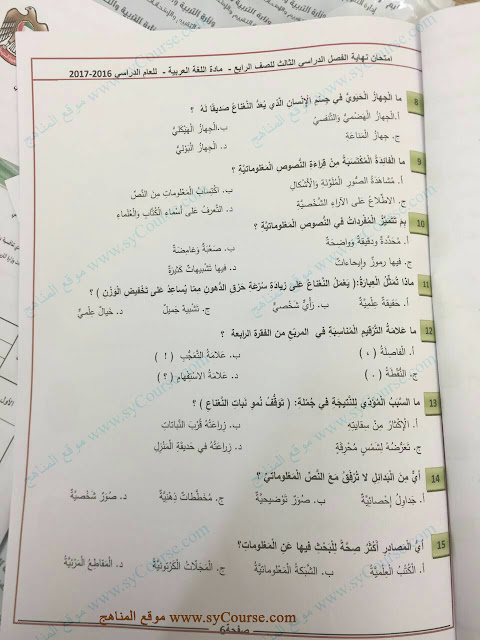 امتحان نهاية الفصل الدراسي الثالث للصف الرابع - مادة اللغة العربية - للعام الدراسي 2016-2017
8 ما الجهازُ الحَيويُّ في جِسْمِ الإنْسانِ الَّذي يُعَدُّ النَّعْناعُ صَديقًا لَهُ ؟
أ.الجِهازُ الهَضْميُّ والتَّنَفُّسيُّ ب.الجِهازُ الهَيْكَليُّ
ج. جِهازُ المَناعَةِ د. الجِهازُ البَوْليُّ
9 ما الفائدَةُ المُكتَسَبَةُ مِنْ قِراءَةِ النُّصوصِ المَعْلوماتيَّةِ ؟
أ. مُشاهَدَةُ الصُّوَرِ المُلَوَّنَةِ والأَشْكالِ ب. اكْتِسابُ المَعْلوماتِ مِنَ النَّصِّ
ج. الاطِّلاعُ عَلى الآراءِ الشَّخْصيَّةِ د. التَّعرُّفُ عَلى أَسْماءِ الكُتّابِ والعُلَماءِ
10 بِمَ تَتَمَيَّزُ المُفْرَداتُ في النُّصوصِ المَعْلوماتيَّةِ ؟
أ. مُحَدَّدَةٌ ودَقيقَةٌ وَواضِحَةٌ ب. صَعْبَةٌ وَغامِضَةٌ
ج. فيها رموزٌ وإيحاءاتٌ د. فيها تَشْبيهاتٌ كَثيرَةٌ
11 ماذا تُمَثِّلُ العِبارَةُ:( يَعْمَلُ النَّعْناعُ عَلى زِيادَةِ سُرْعَةِ حَرْقِ الدُّهونِ مِمّا يُساعِدُ عَلى تَخْفيضِ الوَزْنِ ) ؟
أ. حَقيقَةٌ عِلْميَّةٌ ب. رَأْيٌ شَخْصيٌّ ج. تَشْبيهٌ جَميلٌ د. خَيالٌ عِلْميٌّ
12 ما عَلامَةُ التَّرْقيمِ المُناسِبَةِ في المربّعِ مِنَ الفقرةِ الرابعةِ ؟
أ. الفاصِلَةُ ( ، ) ب. عَلامَةُ التَّعَجُّبِ ( ! )
ج. النُّقْطَةُ ( . ) د. عَلامَةُ الاسْتِفْهامِ ( ؟ )
13 ما السَّبَبُ المُؤَدّي لِلنَّتيجَةِ في جُمْلَةِ: ( تَوَقُّفُ نُموِ نَباتِ النَّعْناعِ ) ؟
أ. الإكْثارُ مِنْ سِقايَتِهِ ب. زِراعَتُهُ قُرْبَ النَّباتاتِ
ج. تَعَرُّضُهُ لِشَمْسٍ مُحْرِقَةٍ د. زِراعَتُهُ في حَديقَةِ المَنْزِلِ
14 أيٌّ مِنَ البَدائِلِ لا تُرْفَقُ مَعَ النَّصِّ المَعْلوماتيِّ ؟
أ. جَداوِلُ إحْصائيَّةٌ ب. صُوَرٌ تَوْضيحيَّةٌ ج. مُخَطَّطاتٌ ذِهْنيَّةٌ د. صُوَرٌ شَخْصيَّةٌ
15 أيُّ المَصادِرِ أكْثَرُ صِحَّةً لِلْبَحْثِ فيها عَنِ المَعْلوماتِ؟
أ. الكُتُبُ العِلْميَّةُ ب. الشَّبَكَةُ المَعْلوماتيَّةُ ج. المَجَلّاتُ الكَرْتونيَّةُ د. المَقاطِعُ المَرْئيَّةُ
موقع المناهج www.syCourse.com
صفحة6